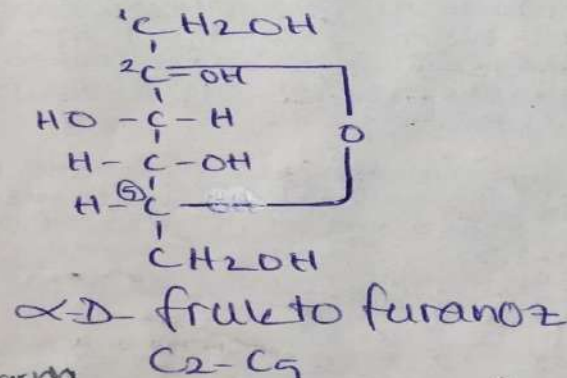 1CH2OH
2C=OH
O
HO-C-H
H-C-OH
H-⑤C-
CH2OH
α-D-frukto furanoz
C2-C5